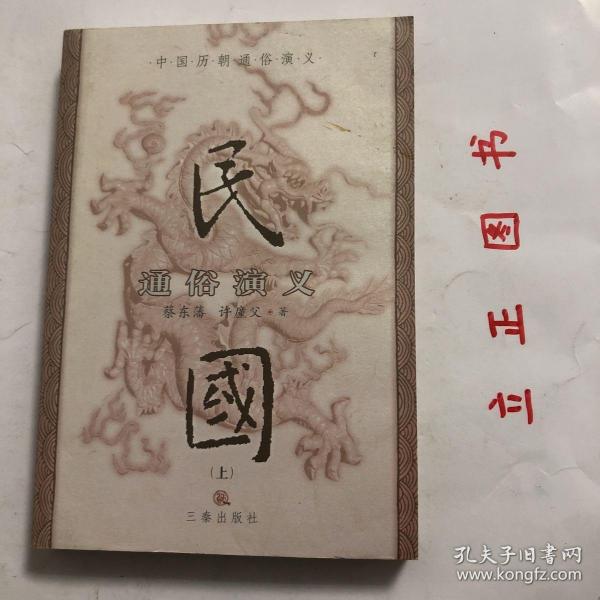 ·中·国·历·朝·通·俗·演·义·
民
通俗演义
蔡东藩 许廑父·著
國
(上)
三秦出版社
立正图书
孔夫子旧书网
www.kongfz.com